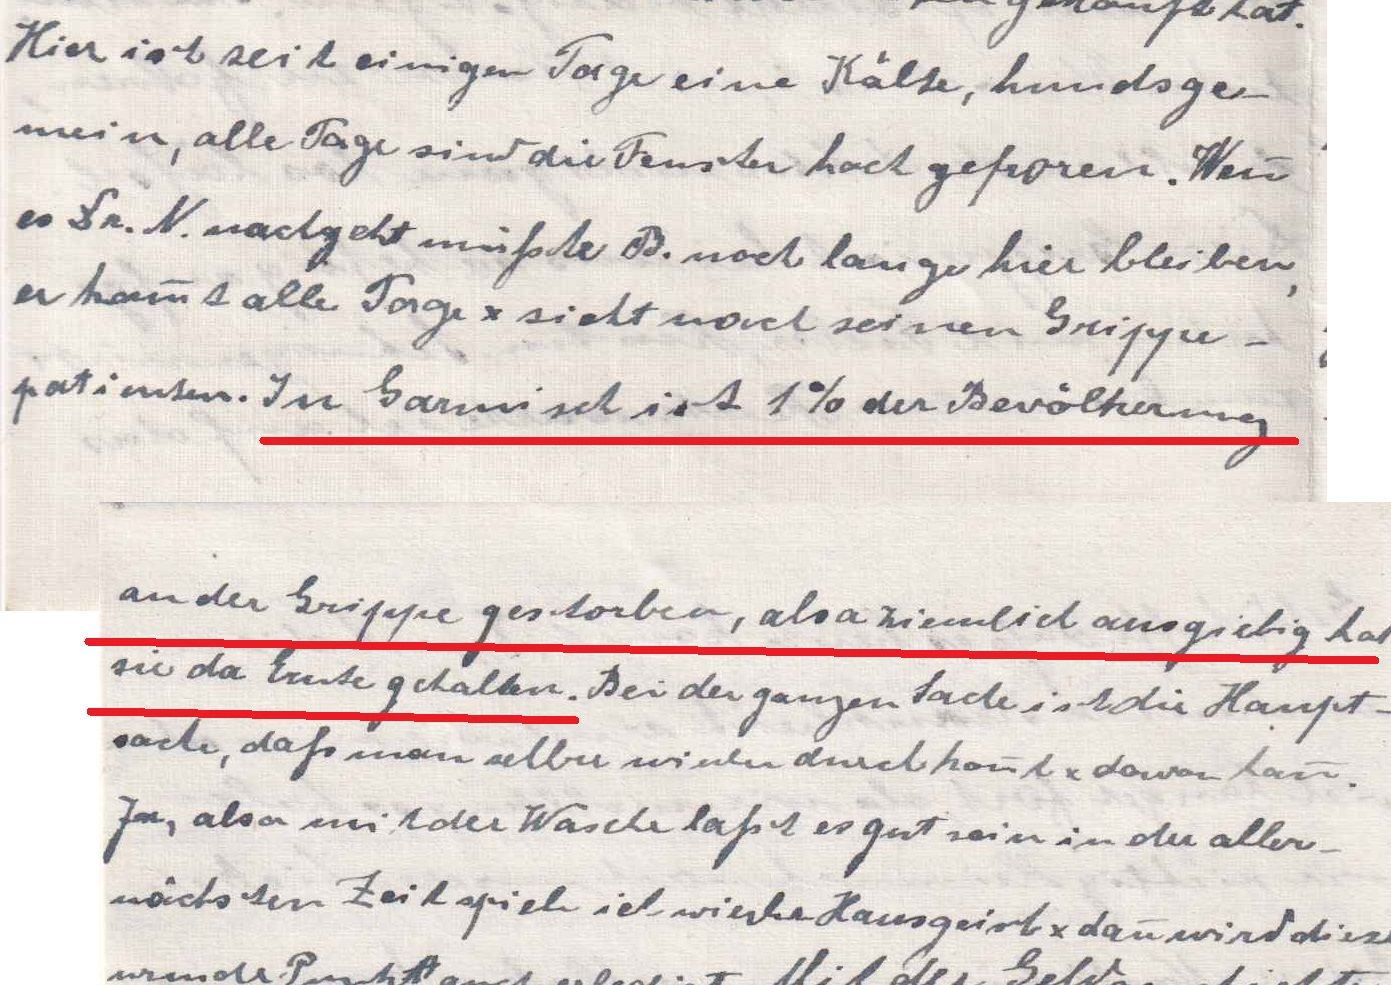 hat.
Hier ist seit einigen Tage eine Kälte, hundsge-
mein, alle Tage sind die Fenster hoch gefroren. Wen̄
es Dr. N. nachgeht müßte B. noch lange hier bleiben,
er kom̄t alle Tage x sieht nach seinen Grippe-
patienten. In Garmisch ist 1% der Bevölkerung
an der Grippe gestorben, also ziemlich ausgiebig hat
sie da Ernte gehalten. Bei der ganzen Sache ist die Haupt-
sache, daß man selber wieder durchkom̄t x davon kan̄.
Ja, also mit der Wäsche laßt es gut sein in der aller-
nächsten Zeit spiele ich wieder Hausgeist x dan̄ wird dieser
wunde Punkt auch erledigt. Mit der